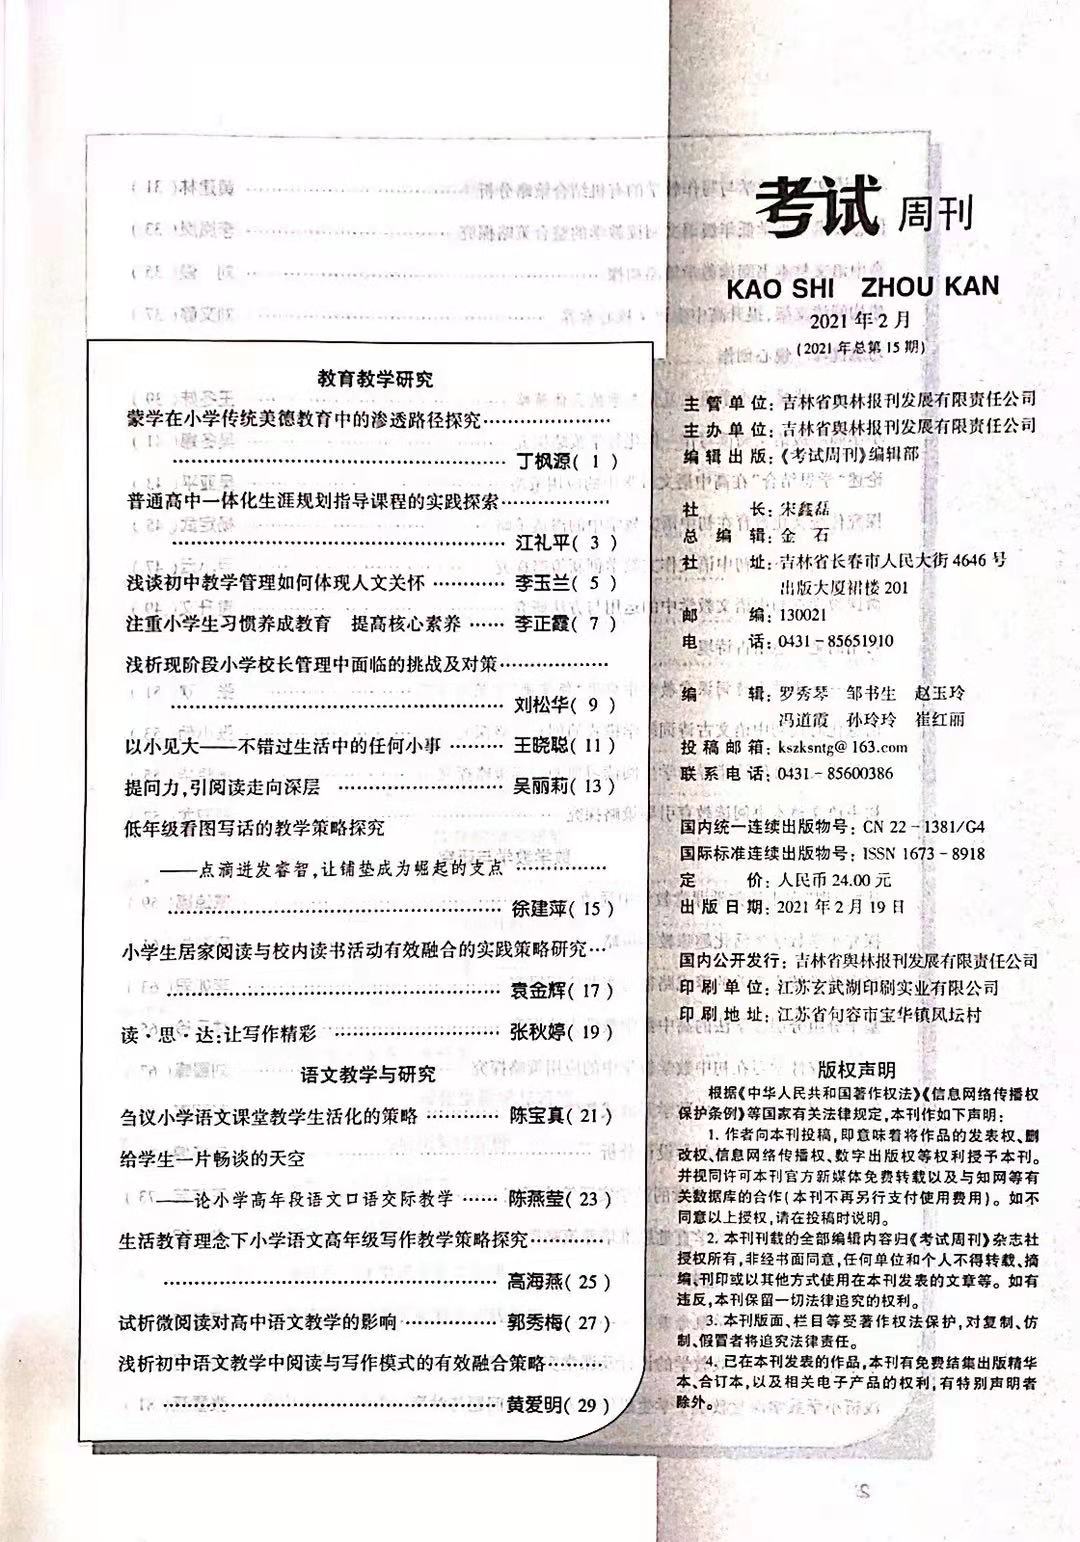 教育教学研究
蒙学在小学传统美德教育中的渗透路径探究………………
………………………………………… 丁枫源( 1 )
普通高中一体化生涯规划指导课程的实践探索……………
………………………………………… 江礼平( 3 )
浅谈初中教学管理如何体现人文关怀 ………… 李玉兰( 5 )
注重小学生习惯养成教育 提高核心素养 …… 李正霞( 7 )
浅析现阶段小学校长管理中面临的挑战及对策……………
………………………………………… 刘松华( 9 )
以小见大——不错过生活中的任何小事 ……… 王晓聪( 11 )
提问力,引阅读走向深层 ………………… 吴丽莉( 13 )
低年级看图写话的教学策略探究
——点滴迸发睿智,让铺垫成为崛起的支点 …………
………………………………………… 徐建萍( 15 )
小学生居家阅读与校内读书活动有效融合的实践策略研究…
………………………………………… 袁金辉( 17 )
读·思·达:让写作精彩 ………………… 张秋婷( 19 )
语文教学与研究
刍议小学语文课堂教学生活化的策略 ………… 陈宝真( 21 )
给学生一片畅谈的天空
——论小学高年段语文口语交际教学 …… 陈燕莹( 23 )
生活教育理念下小学语文高年级写作教学策略探究…………
………………………………………… 高海燕( 25 )
试析微阅读对高中语文教学的影响 …………… 郭秀梅( 27 )
浅析初中语文教学中阅读与写作模式的有效融合策略………
………………………………………… 黄爱明( 29 )
考试周刊
KAO SHI ZHOU KAN
2021 年 2 月
(2021 年总第 15 期)
主管单位: 吉林省舆林报刊发展有限责任公司
主办单位: 吉林省舆林报刊发展有限责任公司
编辑出版: 《考试周刊》编辑部
社 长: 宋鑫磊
总 编 辑: 金 石
社 址: 吉林省长春市人民大街 4646 号
出版大厦裙楼 201
邮 编: 130021
电 话: 0431-85651910
编 辑: 罗秀琴 邹书生 赵玉玲
冯道霞 孙玲玲 崔红丽
投稿邮箱: kszksntg@163.com
联系电话: 0431-85600386
国内统一连续出版物号: CN 22-1381/G4
国际标准连续出版物号: ISSN 1673-8918
定 价: 人民币 24.00 元
出版日期: 2021 年 2 月 19 日
国内公开发行: 吉林省舆林报刊发展有限责任公司
印刷单位: 江苏玄武湖印刷实业有限公司
印刷地址: 江苏省句容市宝华镇凤坛村
版权声明
根据《中华人民共和国著作权法》《信息网络传播权
保护条例》等国家有关法律规定,本刊作如下声明:
1. 作者向本刊投稿,即意味着将作品的发表权、删
改权、信息网络传播权、数字出版权等权利授予本刊。
并视同许可本刊官方新媒体免费转载以及与知网等有
关数据库的合作(本刊不再另行支付使用费用)。如不
同意以上授权,请在投稿时说明。
2. 本刊刊载的全部编辑内容归《考试周刊》杂志社
授权所有,非经书面同意,任何单位和个人不得转载、摘
编、刊印或以其他方式使用在本刊发表的文章等。如有
违反,本刊保留一切法律追究的权利。
3. 本刊版面、栏目等受著作权法保护,对复制、仿
制、假冒者将追究法律责任。
4. 已在本刊发表的作品,本刊有免费结集出版精华
本、合订本,以及相关电子产品的权利,有特别声明者
除外。